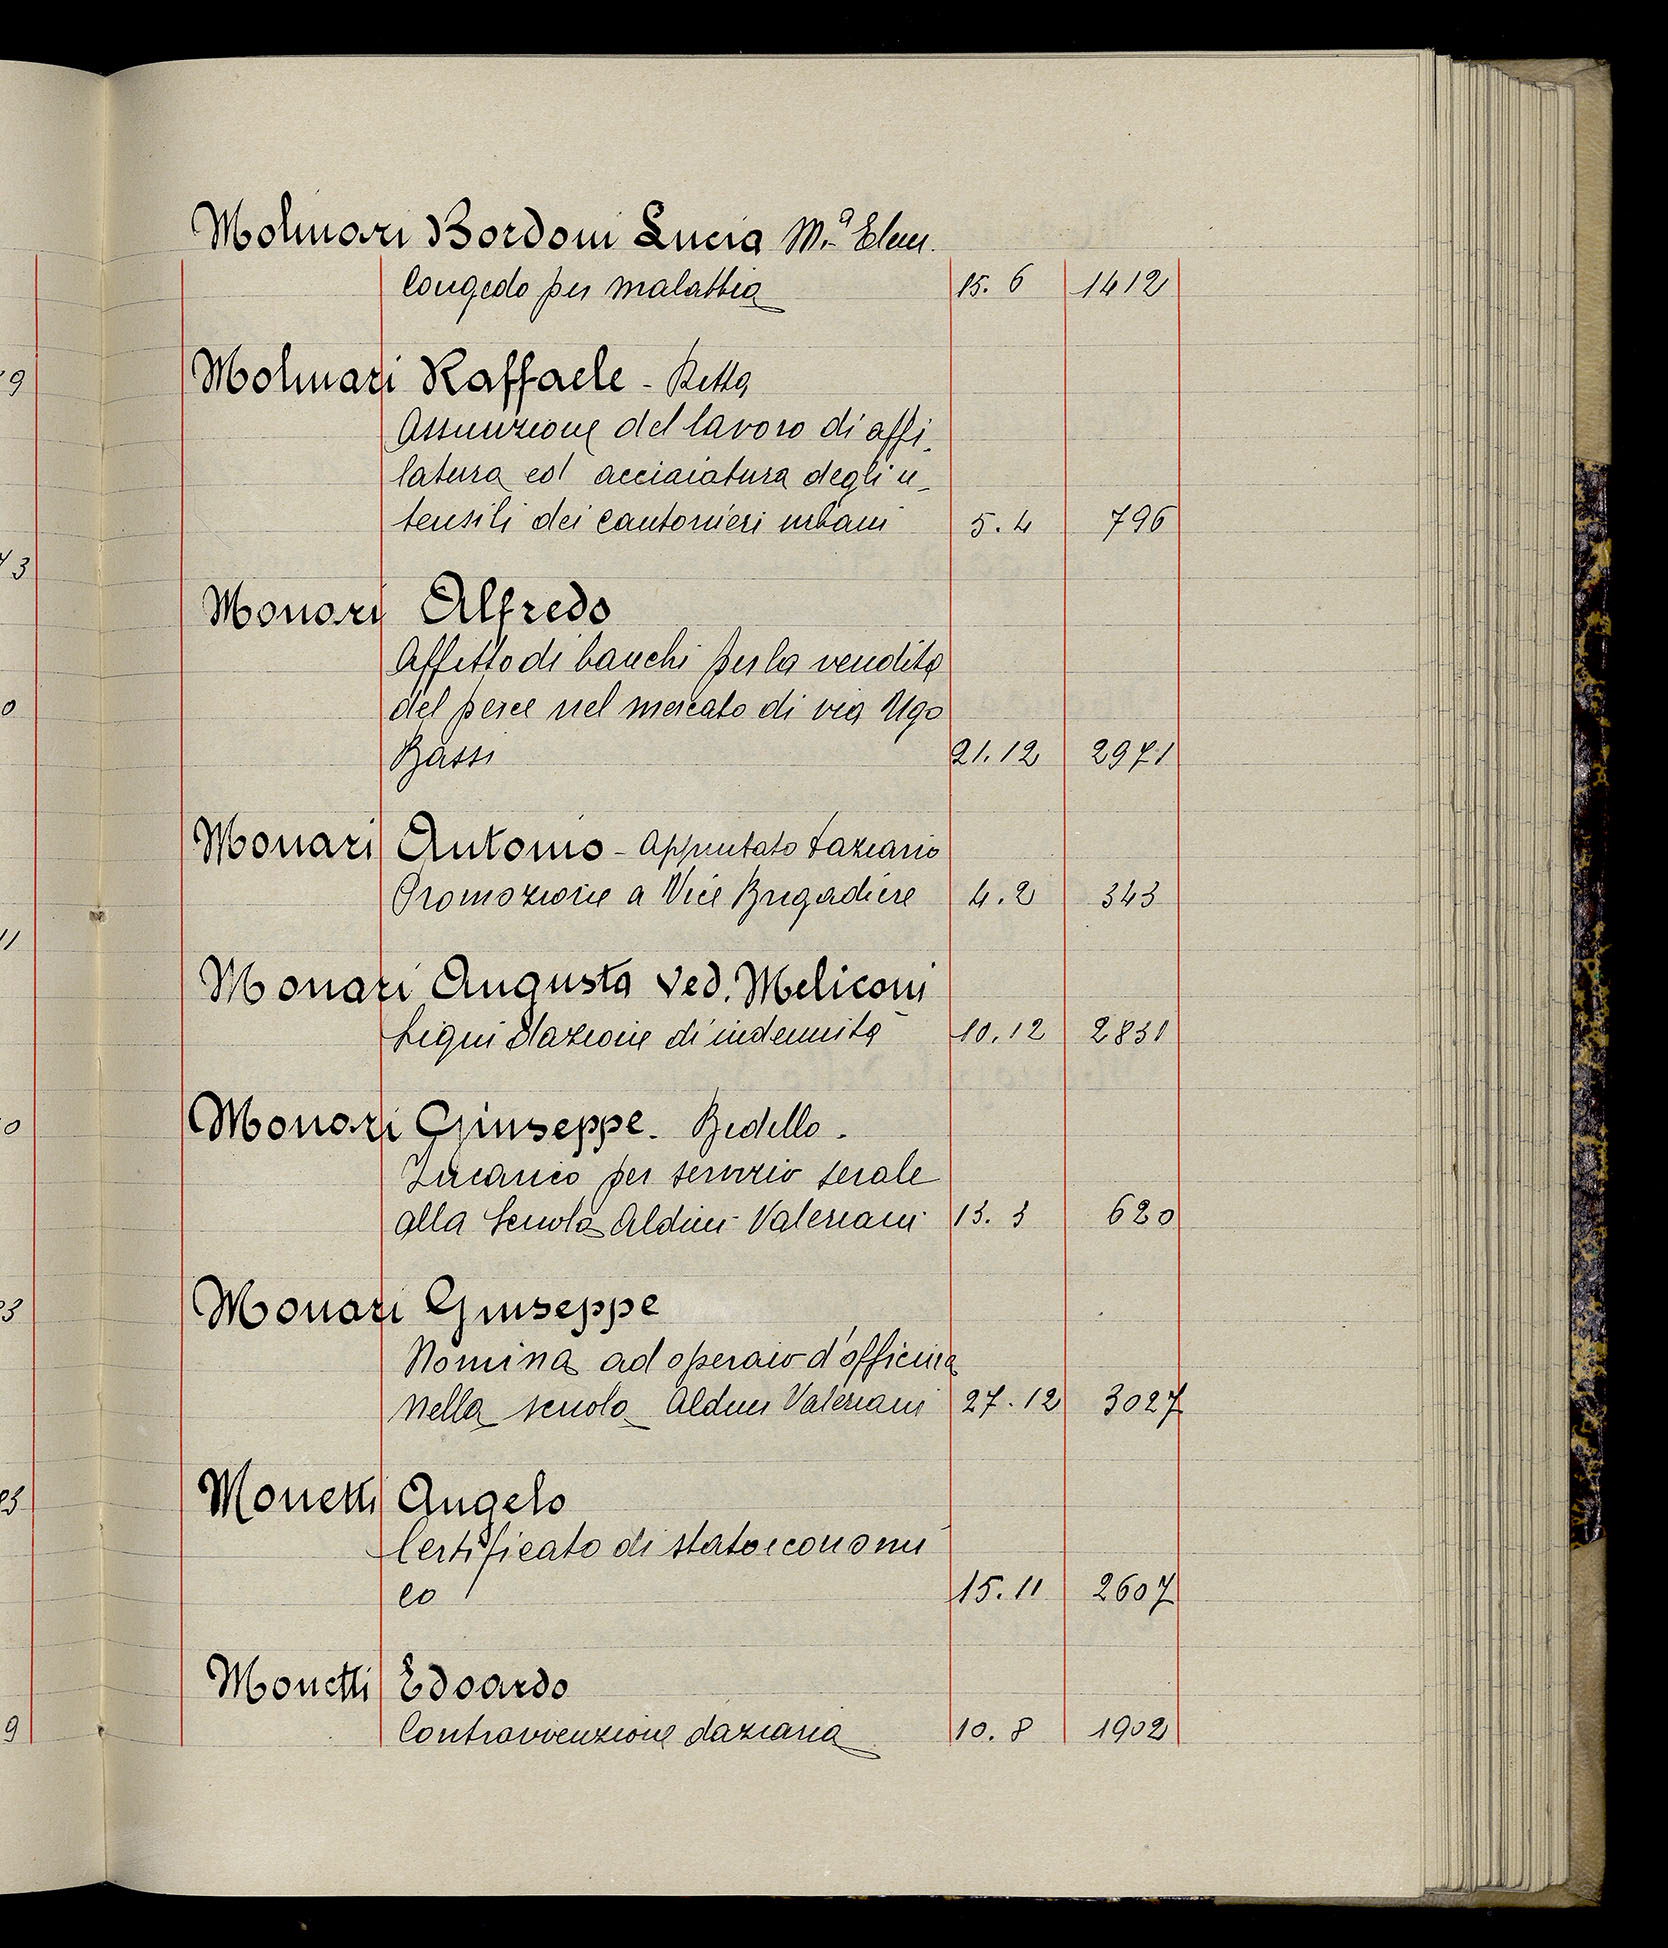 Molinari Bordoni Lucia M.ª Elem.
Congedo per malattia 15. 6 1412
Molinari Raffaele - Ditta
Assunzione del lavoro di affi-
latura ed acciaiatura degli u-
tensili dei cantonieri urbani 5. 4 796
Monari Alfredo
Affitto di banchi per la vendita
del pesce nel mercato di via Ugo
Bassi 21. 12 2971
Monari Antonio - Appuntato Daziario
Promozione a Vice Brigadiere 4. 2 343
Monari Augusta Ved. Meliconi
Liquidazione di indennità 10. 12 2831
Monari Giuseppe. Bidello.
Incarico per servizio serale
alla Scuola Aldini-Valeriani 13. 3 620
Monari Giuseppe
Nomina ad operaio d'officina
nella scuola Aldini Valeriani 27. 12 3027
Monetti Angelo
Certificato di stato economi
co 15. 11 2607
Monetti Edoardo
Contravvenzione daziaria 10. 8 1902